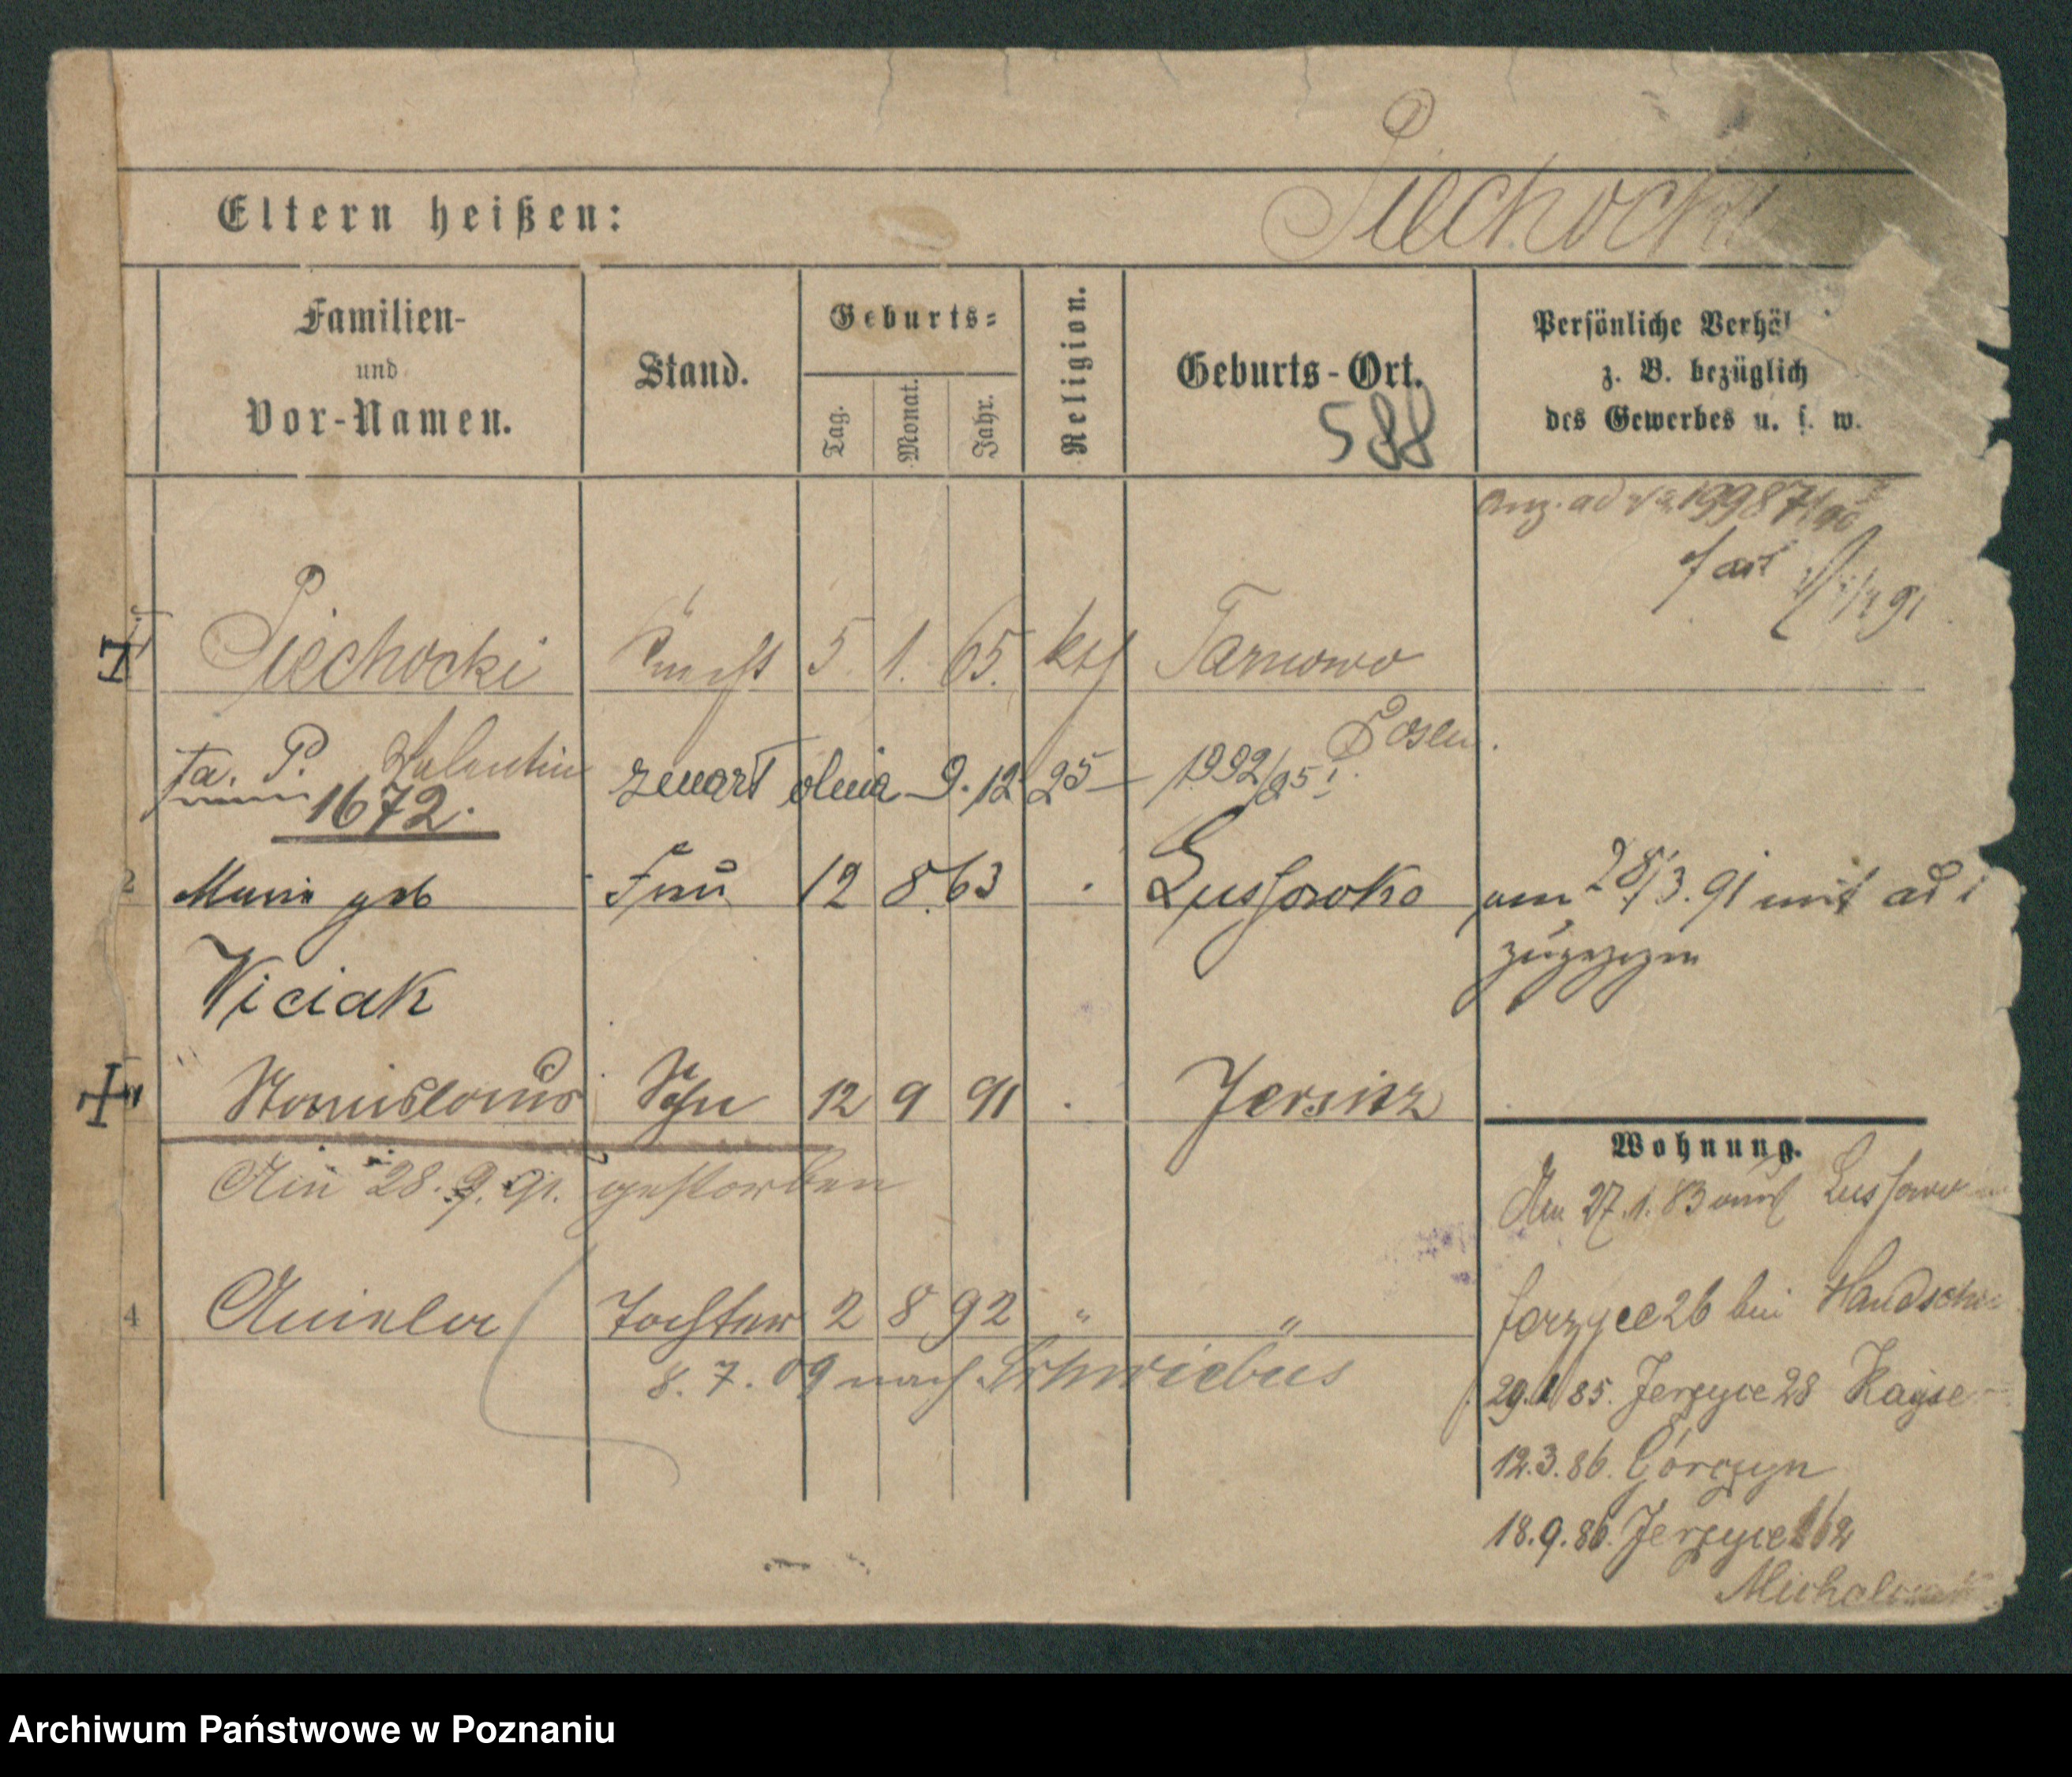 Piechocki
Eltern heißen:
Familien-
und
Vor-Namen.
Stand.
Geburts-
Tag.
Monat.
Jahr.
Religion.
Geburts-Ort.
588
Persönliche Verhäl
z. B. bezüglich
des Gewerbes u. s. w.
Anz. ad 19987/90
Piechocki Knecht 5. 1. 65. kth Tarnowo
Posen.
fa. P. Valentin
1672.
zmarł dnia 9. 12 25 1992/25
2 Marie geb Frau 12 8. 63 Lussowko am 28/3. 91 mit ad 1
zugezogen
Viciak
Stanislaus Sohn 12 9 91 Jersitz
Am 28. 9. 91. gestorben
Wohnung.
Am 27. 1. 83 aus Lussowo
4 Aniela Tochter 2 8 92 " "
8. 7. 09 nach Schwiebus
Jerzyce 26 bei
29. 1 85. Jerzyce 28
12. 3. 86. Górczyn
18. 9. 86. Jerzyce 162
Archiwum Państwowe w Poznaniu